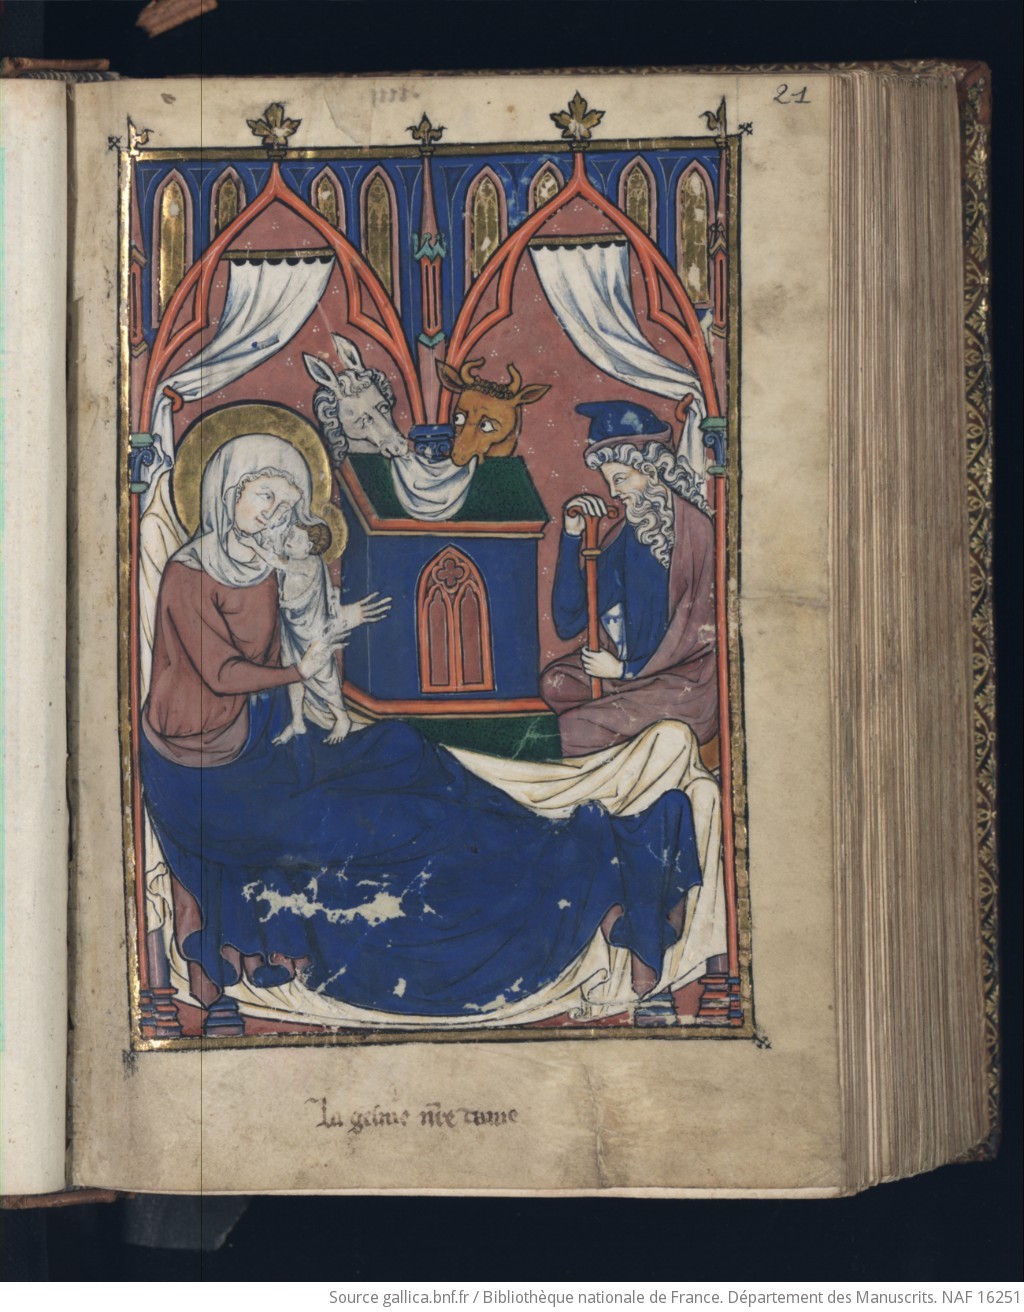 21
La gesine nr̃e dame
Source gallica.bnf.fr / Bibliothèque nationale de France. Département des Manuscrits. NAF 16251